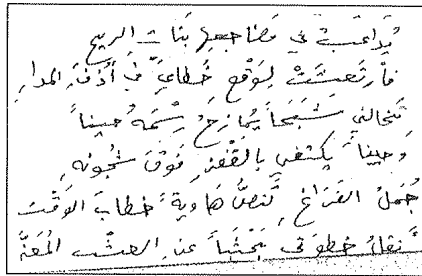 يُداعبْنَ في مَضاجعِها بَنات الريح
فارتَعِشَتْ لِوَقْعِ خُطايَ في أُذُنِ المدار
تَخالني شَبَحاً يُمازحُ رسْمَه حيناً
وحيناً يكتفي بالقَفْزِ فوقَ شُجونهِ
جُمَلُ الفَرَاغِ تَنُصُّ هاويةً خطابَ الوقت
أنقلُ خطوتي بَحْثاً عن العشب